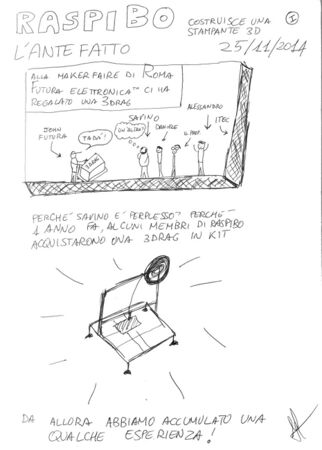 RASPIBO
COSTRUISCE UNA
STAMPANTE 3D
1
L'ANTEFATTO
25/11/2014
ALLA MAKER FAIRE DI ROMA
FUTURA ELETTRONICA™ CI HA
REGALATO UNA 3DRAG
JOHN
FUTURA
TADÀ!
3DRAG
SAVINO
UN'ALTRA?
DAVIDE
IL PROF
ALESSANDRO
ITEC
PERCHÉ SAVINO È PERPLESSO? PERCHÉ
1 ANNO FA, ALCUNI MEMBRI DI RASPIBO
ACQUISTARONO UNA 3DRAG IN KIT
DA ALLORA ABBIAMO ACCUMULATO UNA
QUALCHE ESPERIENZA!